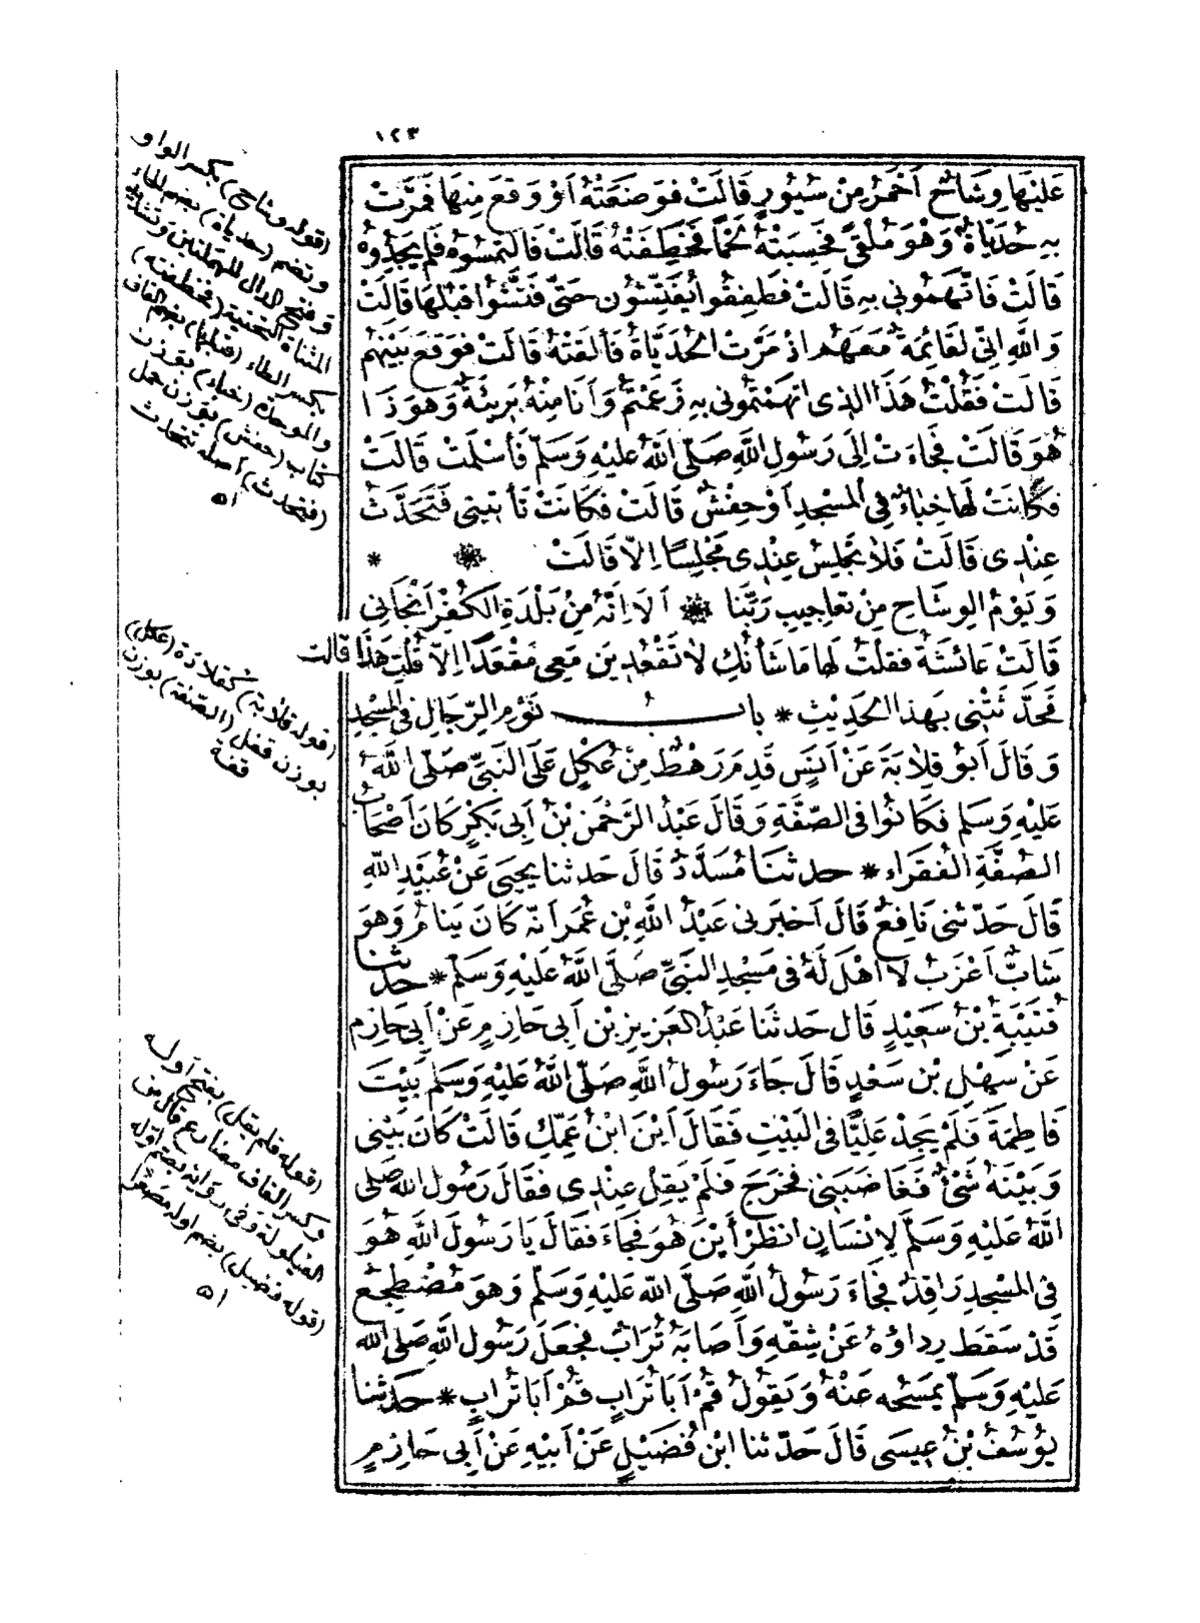 ١٢٣
عَلَيْهَا وِشَاحٌ أَحْمَرُ مِنْ سُيُورٍ قَالَتْ فَوَضَعَتْهُ أَوْ وَقَعَ مِنْهَا فَمَرَّتْ
بِهِ حُدَيَّاةٌ وَهْوَ مُلْقًى فَحَسِبَتْهُ لَحْمًا فَخَطِفَتْهُ قَالَتْ فَالْتَمَسُوهُ فَلَمْ يَجِدُوهُ
قَالَتْ فَاتَّهَمُونِي بِهِ قَالَتْ فَطَفِقُوا يُفَتِّشُونَ حَتَّى فَتَّشُوا قُبُلَهَا قَالَتْ
وَاللَّهِ إِنِّي لَقَائِمَةٌ مَعَهُمْ إِذْ مَرَّتِ الْحُدَيَّاةُ فَأَلْقَتْهُ قَالَتْ فَوَقَعَ بَيْنَهُمْ
قَالَتْ فَقُلْتُ هَذَا الَّذِي اتَّهَمْتُمُونِي بِهِ زَعَمْتُمْ وَأَنَا مِنْهُ بَرِيئَةٌ وَهُوَ ذَا
هُوَ قَالَتْ فَجَاءَتْ إِلَى رَسُولِ اللَّهِ صَلَّى اللَّهُ عَلَيْهِ وَسَلَّمَ فَأَسْلَمَتْ قَالَتْ
فَكَانَتْ لَهَا خِبَاءٌ فِي الْمَسْجِدِ أَوْ حِفْشٌ قَالَتْ فَكَانَتْ تَأْتِينِي فَتَحَدَّثُ
عِنْدِي قَالَتْ فَلَا تَجْلِسُ عِنْدِي مَجْلِسًا إِلَّا قَالَتْ * *
وَيَوْمُ الْوِشَاحِ مِنْ تَعَاجِيبِ رَبِّنَا * أَلَا إِنَّهُ مِنْ بَلْدَةِ الْكُفْرِ أَنْجَانِي
قَالَتْ عَائِشَةُ فَقُلْتُ لَهَا مَا شَأْنُكِ لَا تَقْعُدِينَ مَعِي مَقْعَدًا إِلَّا قُلْتِ هَذَا قَالَتْ
فَحَدَّثَتْنِي بِهَذَا الْحَدِيثِ * بَابُ نَوْمِ الرِّجَالِ فِي الْمَسْجِدِ
وَقَالَ أَبُو قِلَابَةَ عَنْ أَنَسٍ قَدِمَ رَهْطٌ مِنْ عُكْلٍ عَلَى النَّبِيِّ صَلَّى اللَّهُ
عَلَيْهِ وَسَلَّمَ فَكَانُوا فِي الصُّفَّةِ وَقَالَ عَبْدُ الرَّحْمَنِ بْنُ أَبِي بَكْرٍ كَانَ أَصْحَابُ
الصُّفَّةِ الْفُقَرَاءَ * حَدَّثَنَا مُسَدَّدٌ قَالَ حَدَّثَنَا يَحْيَى عَنْ عُبَيْدِ اللَّهِ
قَالَ حَدَّثَنِي نَافِعٌ قَالَ أَخْبَرَنِي عَبْدُ اللَّهِ بْنِ عُمَرَ أَنَّهُ كَانَ يَنَامُ وَهُوَ
شَابٌّ أَعْزَبُ لَا أَهْلَ لَهُ فِي مَسْجِدِ النَّبِيِّ صَلَّى اللَّهُ عَلَيْهِ وَسَلَّمَ * حَدَّثَنَا
قُتَيْبَةُ بْنُ سَعِيدٍ قَالَ حَدَّثَنَا عَبْدُ الْعَزِيزِ بْنِ أَبِي حَازِمٍ عَنْ أَبِي حَازِمٍ
عَنْ سَهْلِ بْنِ سَعْدٍ قَالَ جَاءَ رَسُولُ اللَّهِ صَلَّى اللَّهُ عَلَيْهِ وَسَلَّمَ بَيْتَ
فَاطِمَةَ فَلَمْ يَجِدْ عَلِيًّا فِي الْبَيْتِ فَقَالَ أَيْنَ ابْنُ عَمِّكِ قَالَتْ كَانَ بَيْنِي
وَبَيْنَهُ شَيْءٌ فَغَاضَبَنِي فَخَرَجَ فَلَمْ يَقِلْ عِنْدِي فَقَالَ رَسُولُ اللَّهِ صَلَّى
اللَّهُ عَلَيْهِ وَسَلَّمَ لِإِنْسَانٍ انْظُرْ أَيْنَ هُوَ فَجَاءَ فَقَالَ يَا رَسُولَ اللَّهِ هُوَ
فِي الْمَسْجِدِ رَاقِدٌ فَجَاءَ رَسُولُ اللَّهِ صَلَّى اللَّهُ عَلَيْهِ وَسَلَّمَ وَهُوَ مُضْطَجِعٌ
قَدْ سَقَطَ رِدَاؤُهُ عَنْ شِقِّهِ وَأَصَابَهُ تُرَابٌ فَجَعَلَ رَسُولُ اللَّهِ صَلَّى اللَّهُ
عَلَيْهِ وَسَلَّمَ يَمْسَحُهُ عَنْهُ وَيَقُولُ قُمْ أَبَا تُرَابٍ قُمْ أَبَا تُرَابٍ * حَدَّثَنَا
يُوسُفُ بْنُ عِيسَى قَالَ حَدَّثَنَا ابْنُ فُضَيْلٍ عَنْ أَبِيهِ عَنْ أَبِي حَازِمٍ
(قوله وشاح) بكسر الواو
وتضم (حدياة) بضم الحاء
وفتح الدال المهملتين وتشديد
المثناة التحتية (فخطفته)
بكسر الطاء (قبلها) بضم القاف
والموحدة (خباء) بوزن
كتاب (حفش) بوزن حمل
(فتحدث) أصله تتحدث
اه
(قوله قلابة) كقلادة (عكل)
بوزن قفل (الصفة) بوزن
قفة
(قوله فلم يقل) بفتح أوله
وكسر القاف مضارع قال من
القيلولة وفي رواية بضم أوله
(قوله فضيل) بضم أوله مصغرا
اه